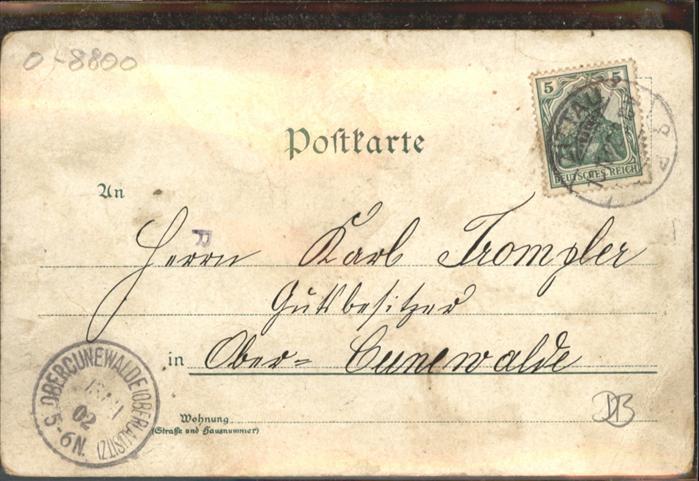 0-8800
5 5
DEUTSCHES REICH
ZITTAU
Postkarte
An
R
Herrn Karl Trompler
Gutsbesitzer
in Ober-Cunewalde
OBERCUNEWALDE (OBERLAUSITZ)
02
5-6N.
Wohnung
(Straße und Hausnummer)